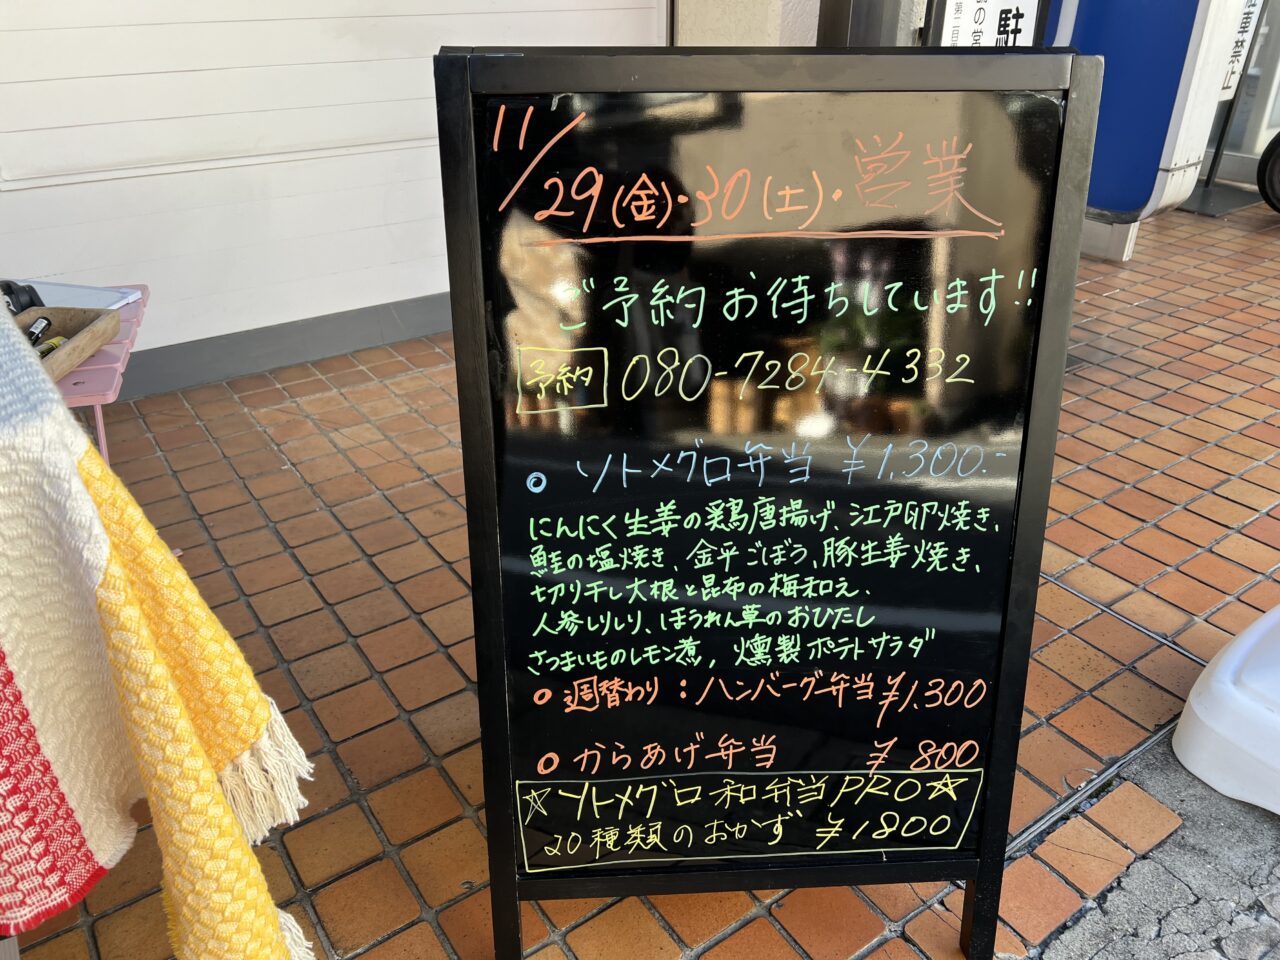 11/29(金)・30(土)・営業
ご予約お待ちしています!!
予約 080-7284-4332
ソトメグロ弁当 ¥1,300.-
にんにく生姜の鶏唐揚げ、江戸卵焼き、
鮭の塩焼き、金平ごぼう、豚生姜焼き、
切り干し大根と昆布の梅和え、
人参しりしり、ほうれん草のおひたし
さつまいものレモン煮, 燻製ポテトサラダ
週替わり:ハンバーグ弁当 ¥1,300
からあげ弁当 ¥800
☆ソトメグロ和弁当PRO☆
20種類のおかず ¥1800
駐
駐車禁止